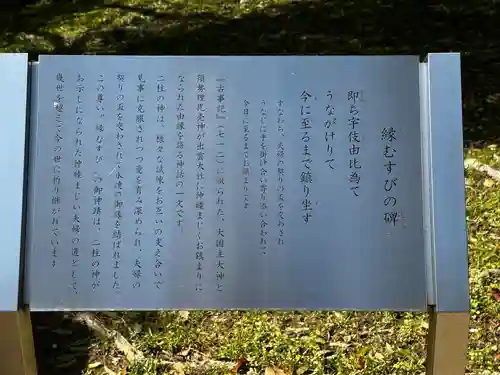 縁むすびの碑
即ち宇伎由比為て
うながけりて
今に至るまで鎮り坐す
すなわち、夫婦の契りの盃を交わされ
うなじに手を掛け合い寄り添い合われて
今日に至るまでお鎮まりです
『古事記』（七一二）に収められた、大国主大神と
須勢理毘売神が出雲大社に仲睦まじくお鎮まりに
なられた由縁を語る神話の一文です。
二柱の神は、様々な試練をお互いの支え合いで
見事に克服されつつ愛を育み深められ、夫婦の
契りの盃を交わされて永遠の御縁を結ばれました。
この尊い"縁むすび"の御神蹟は、二柱の神が
お示しになられた仲睦まじい夫婦の道として、
幾世を経て今の世に祈り継がれています。